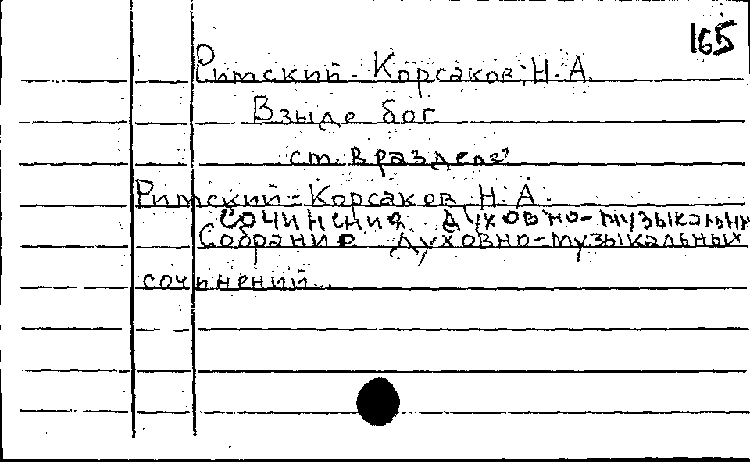 165
Римский-Корсаков, Н.А.
Взыде бог
см. в разделе:
Римский-Корсаков, Н.А.
Сочинения духовно-музыкальн
Собрание духовно-музыкальных
сочинений...